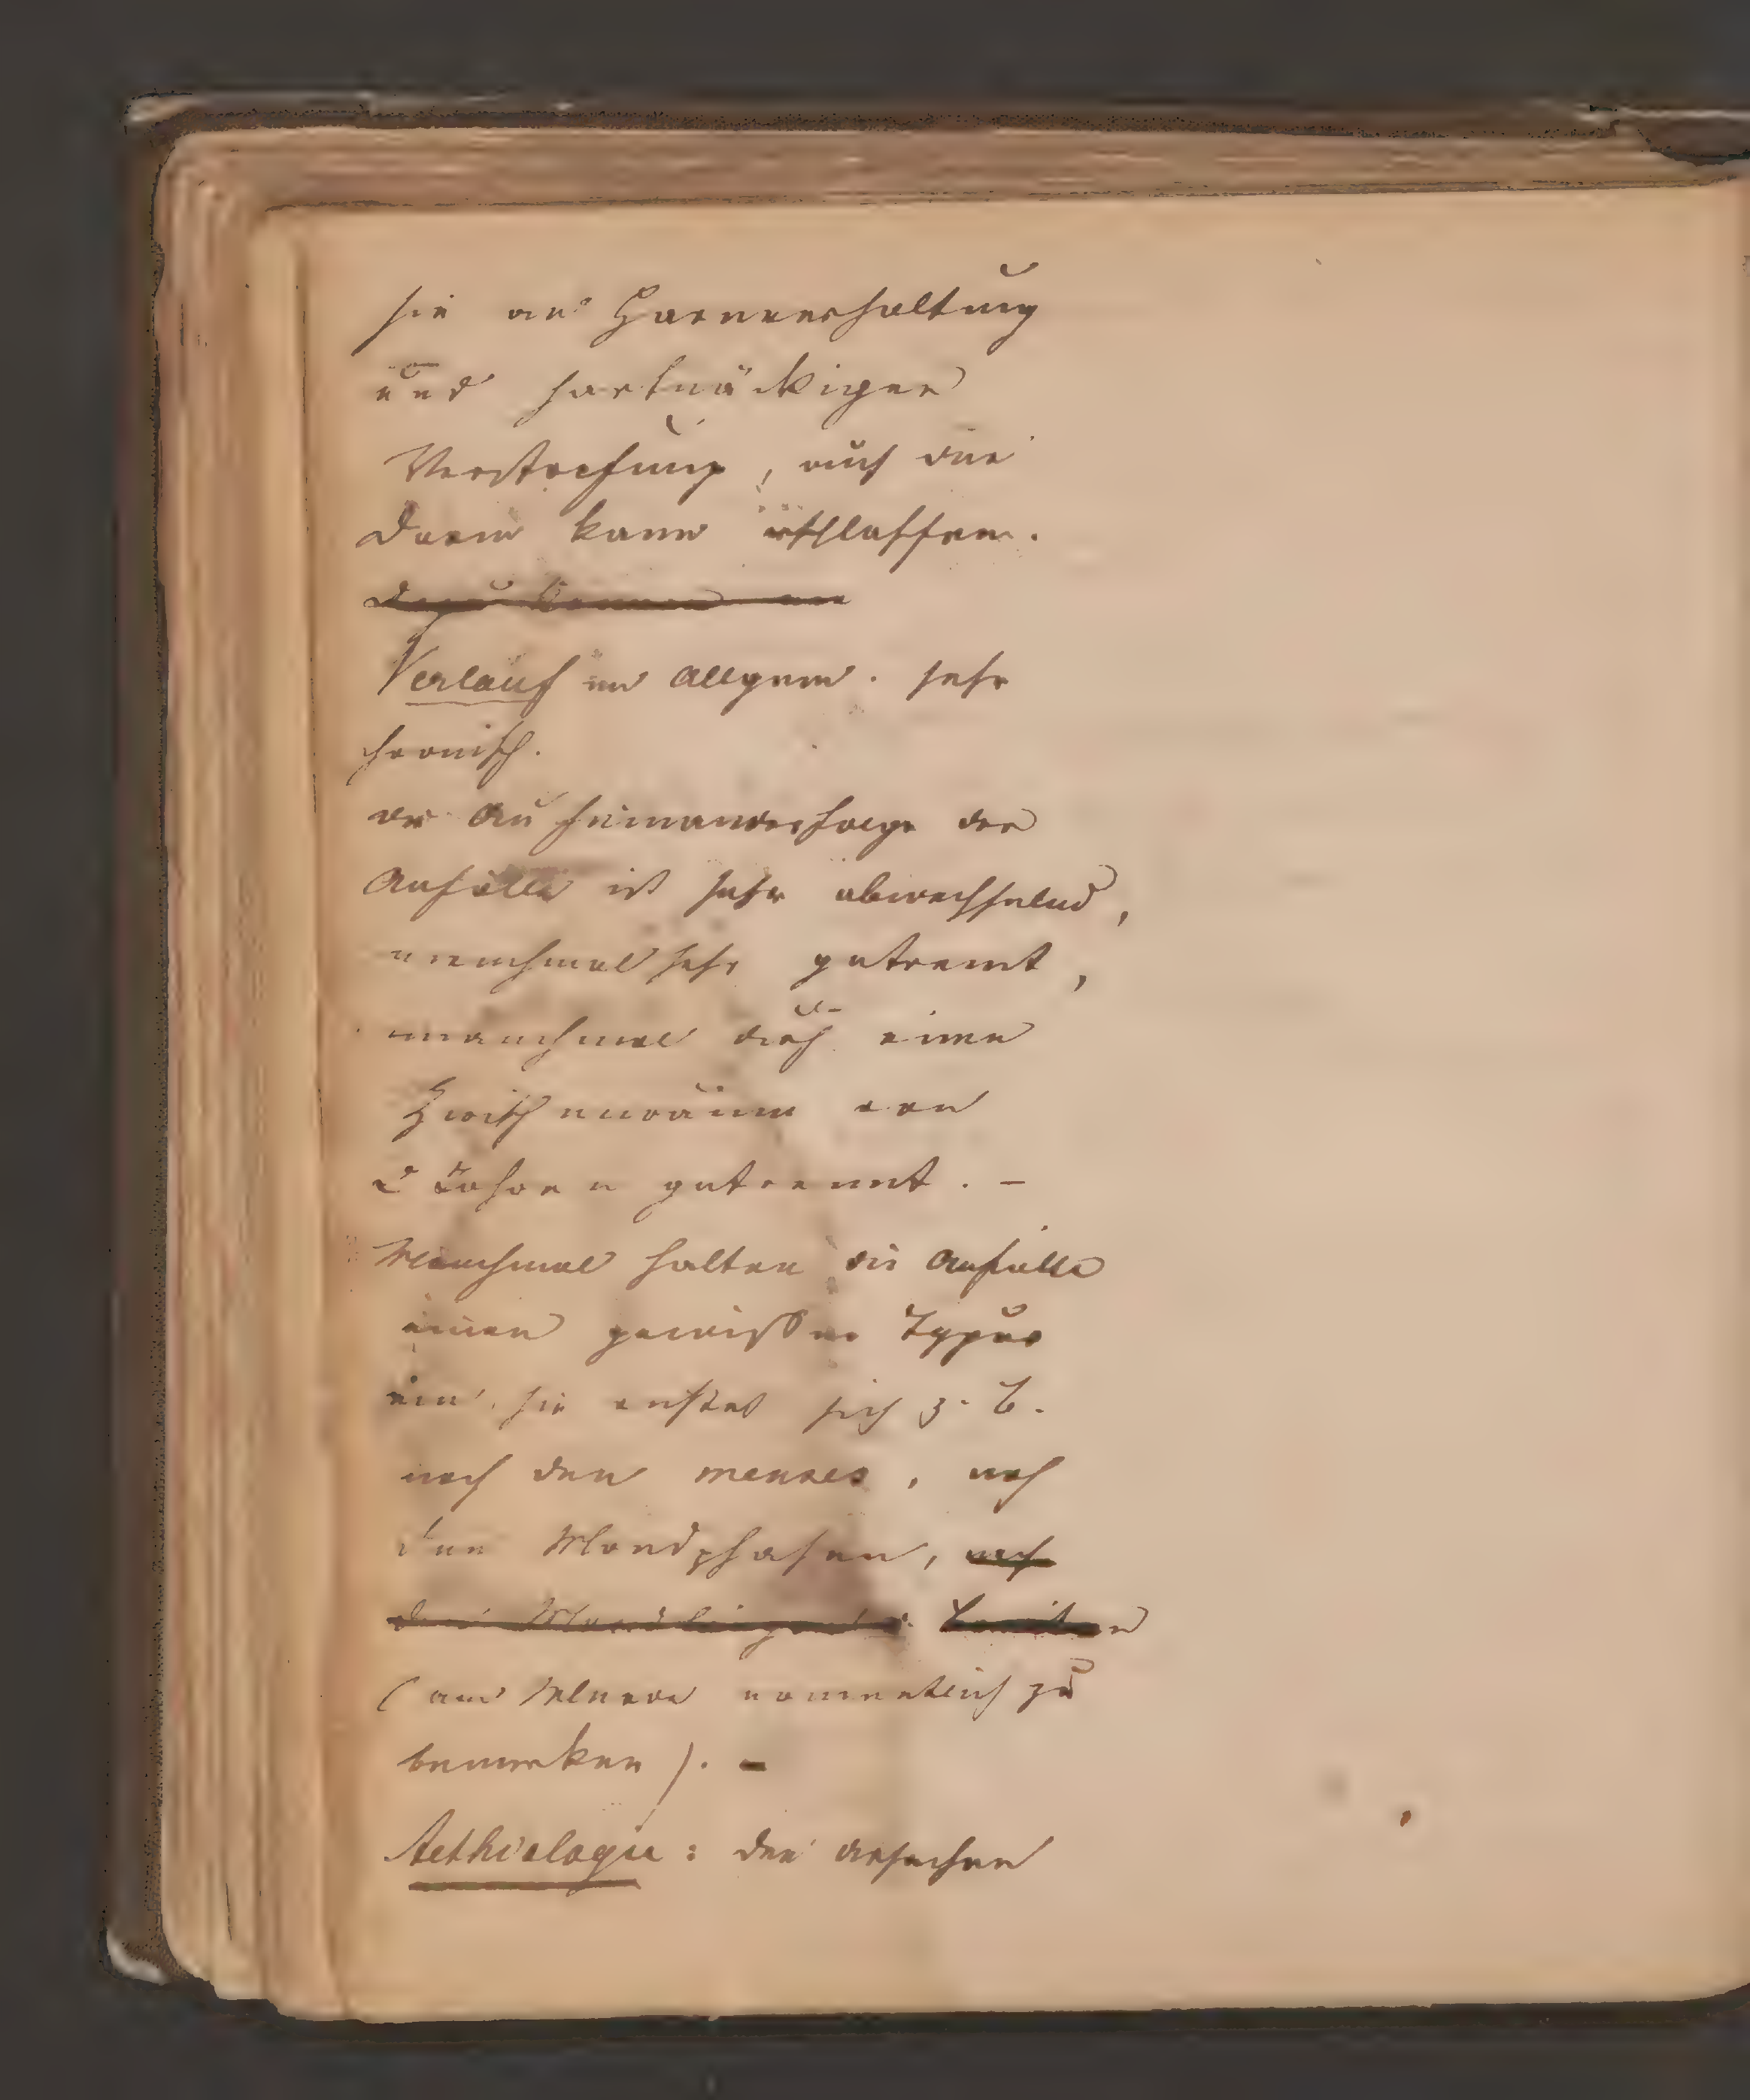 sie an Harnverhaltung
und hartnäckiger
Verstopfung, auch die
Darm kann erschlaffen.
Verlauf im Allgem. sehr
chronisch.
die Aufeinanderfolge der
Anfälle ist sehr abwechselnd,
manchmal sehr getrennt,
manchmal durch einen
Zwischenraum von
2 Jahren getrennt. –
Manchmal halten die Anfälle
einen gewissen Typus
ein, sie richten sich z. B.
nach den menses, nach
den Mondphasen, nach
(am Meere namentlich zu
bemerken). –
Aethiologie: die Ursachen